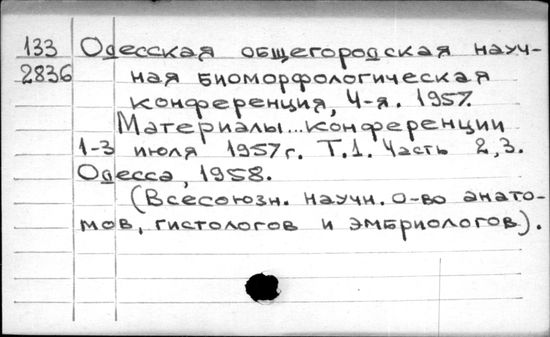 133 Одесская общегородская науч-
2836 ная биоморфологическая
конференция, 4-я. 1957.
Материалы...конференции
1-3 июля 1957г. Т.1. Часть 2,3.
Одесса, 1958.
(Всесоюзн. научн. о-во анато-
мов, гистологов и эмбриологов).